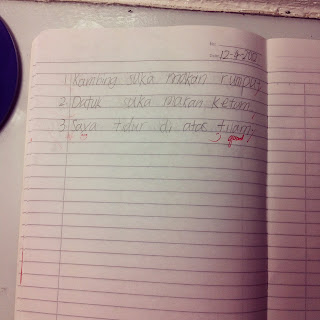 12-9-2012
1. Kambing suka makan rumput
2. Datuk suka makan ketum,
3. Saya tidur di atas tilam,